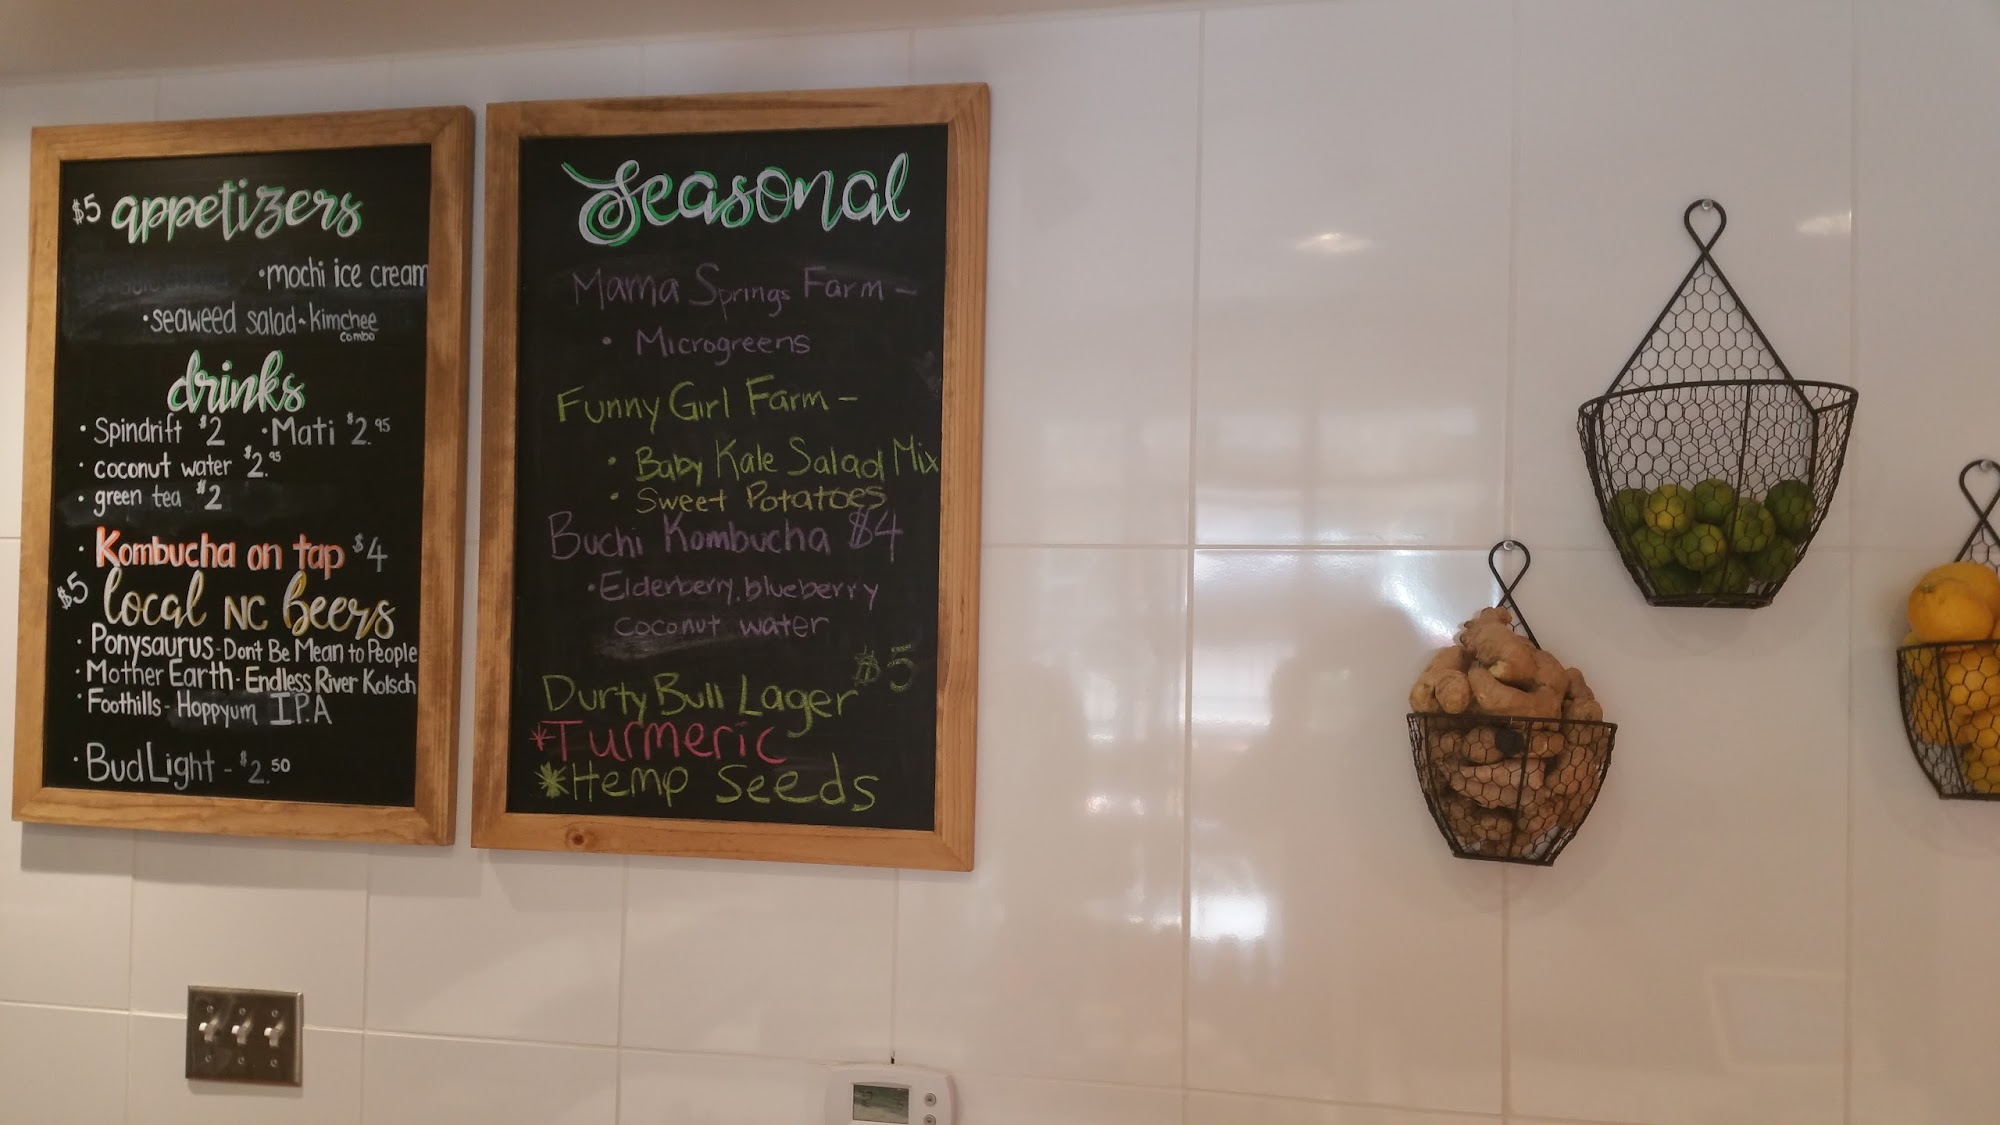 $5 appetizers
• mochi ice cream
• seaweed salad ~ Kimchee
combo
drinks
• Spindrift $2 • Mati $2.95
• coconut water $2.95
• green tea $2
• Kombucha on tap $4
$5 local NC Beers
• Ponysaurus - Don't Be Mean to People
• Mother Earth - Endless River Kolsch
• Foothills - Hoppyum IPA
• Bud Light - $2.50
Seasonal
Mama Springs Farm -
• Microgreens
Funny Girl Farm -
• Baby Kale Salad Mix
• Sweet Potatoes
Buchi Kombucha $4
• Elderberry, blueberry
coconut water
$5
Durty Bull Lager
*Turmeric
*Hemp Seeds